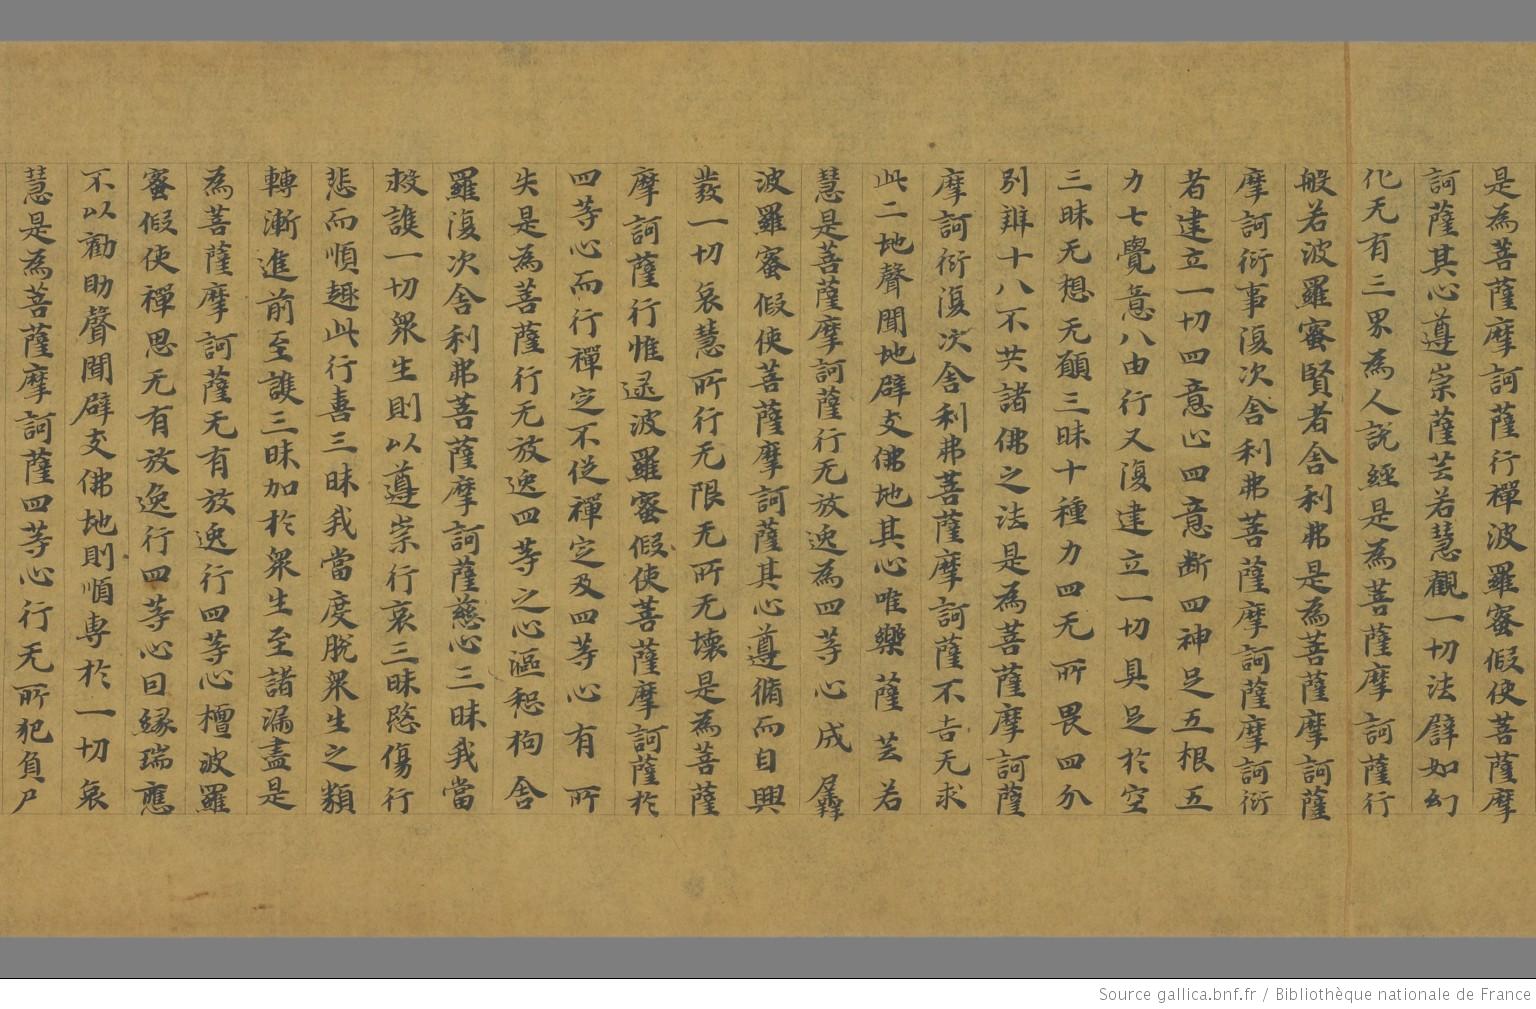 是為菩薩摩訶薩行禪波羅蜜假使菩薩摩
訶薩其心遵崇薩芸若慧觀一切法譬如幻
化无有三界為人說經是為菩薩摩訶薩行
般若波羅蜜賢者舍利弗是為菩薩摩訶薩
摩訶衍事復次舍利弗菩薩摩訶薩摩訶衍
者建立一切四意止四意断四神足五根五
力七覺意八由行又復建立一切具足於空
三昧无想无願三昧十種力四无所畏四分
別辯十八不共諸佛之法是為菩薩摩訶薩
摩訶衍復次舍利弗菩薩摩訶薩不志无求
此二地聲聞地辟支佛地其心唯樂薩芸若
慧是菩薩摩訶薩行无放逸為四等心成羼
波羅蜜假使菩薩摩訶薩其心遵脩而自興
發一切哀慧所行无限无所无壞是為菩薩
摩訶薩行惟逮波羅蜜假使菩薩摩訶薩於
四等心而行禪定不從禪定及四等心有所
失是為菩薩行无放逸四等之心漚惒拘舍
羅復次舍利弗菩薩摩訶薩慈心三昧我當
救護一切眾生則以遵崇行哀三昧愍傷行
悲而順趣此行喜三昧我當度脫眾生之類
轉漸進前至護三昧加於眾生至諸漏盡是
為菩薩摩訶薩无有放逸行四等心檀波羅
蜜假使禪思无有放逸行四等心曰緣瑞應
不以勸助聲聞辟支佛地則順專於一切哀
慧是為菩薩摩訶薩四等心行无所犯負尸
Source gallica.bnf.fr / Bibliothèque nationale de France